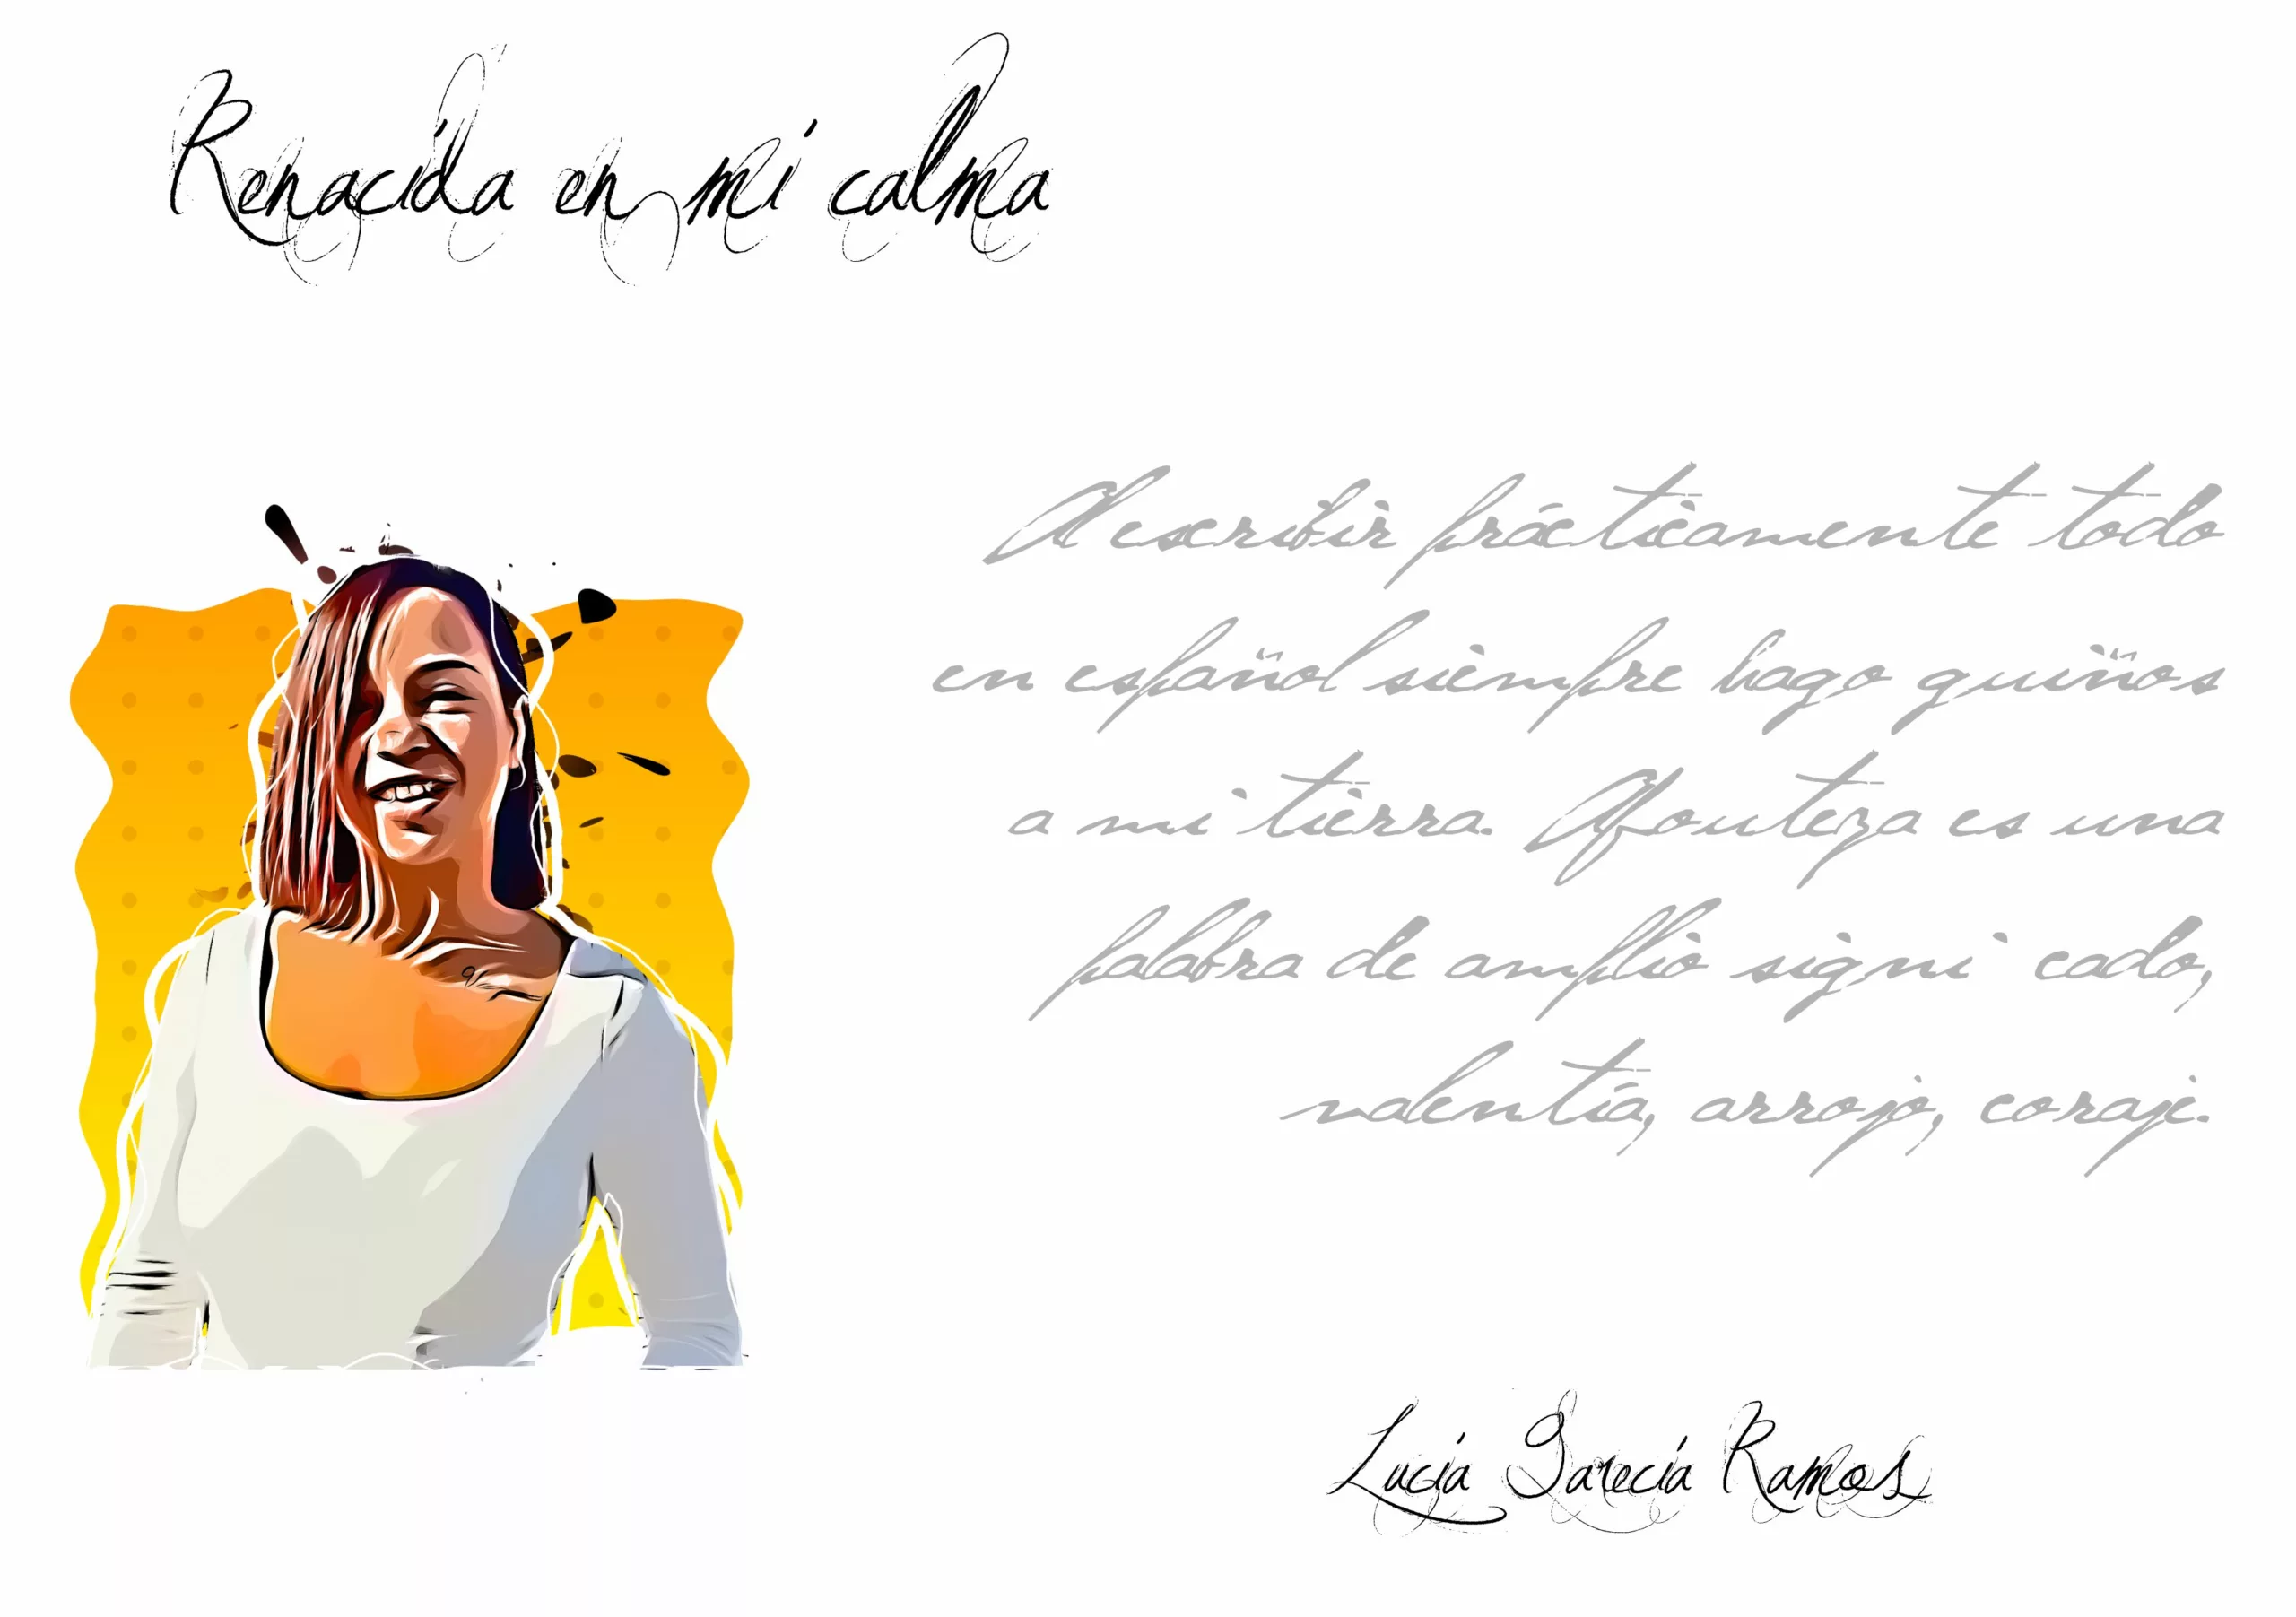 Renacida en mi calma
Al escribir prácticamente todo
en español siempre hago guiños
a mi tierra. Afouteza es una
palabra de amplio signi cado,
valentía, arrojo, coraje.
Lucía Garecía Ramos